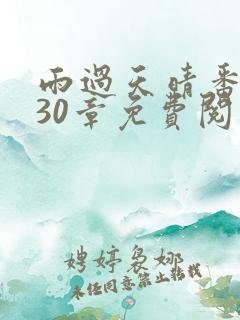 雨過天晴番
30章免費閱
娉婷裊娜
未任同意禁止转载